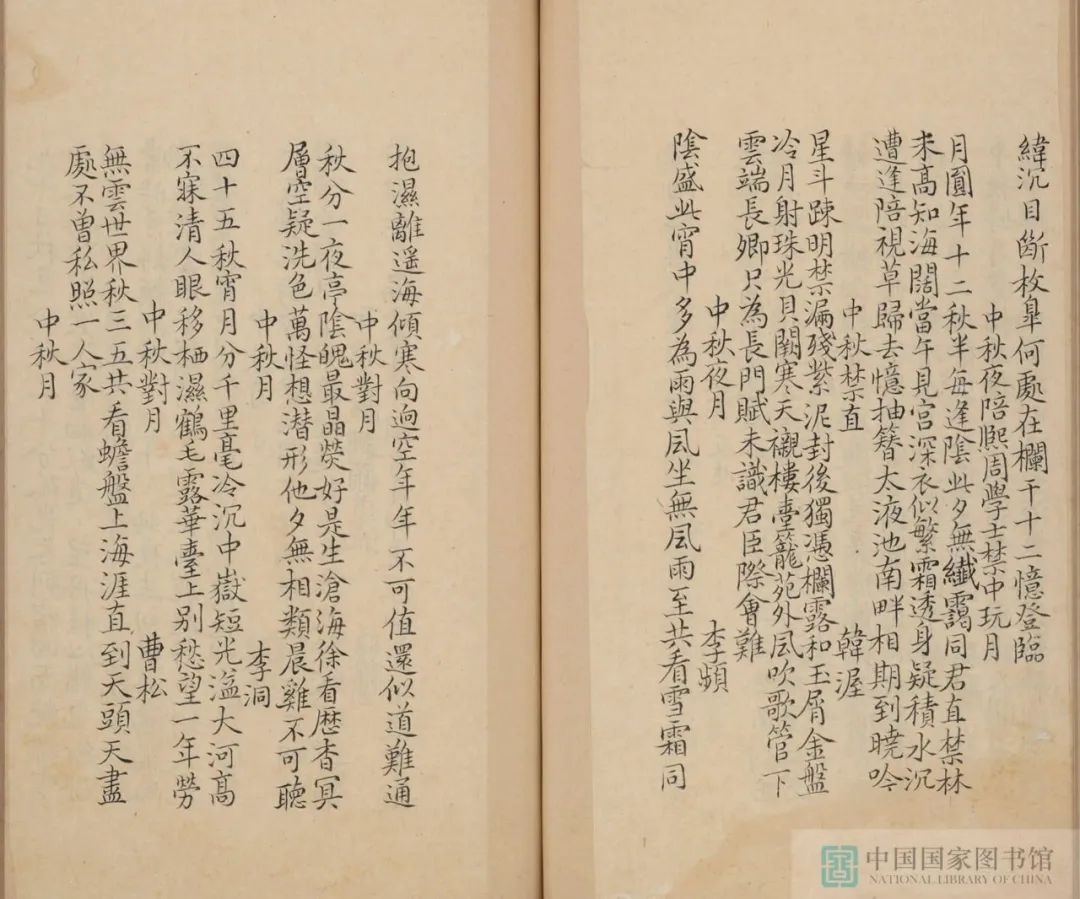 緯沉目斷枚皐何處在欄干十二憶登臨
中秋夜陪熙周學士禁中玩月
月圓年十二秋半每逢陰此夕無纖靄同君直禁林
来高知海闊當午見宫深衣似繁霜透身疑積水沉
遭逢陪視草歸去憶抽簪太液池南畔相期到曉吟
中秋禁直 韓渥
星斗踈明禁漏殘紫泥封後獨憑欄露和玉屑金盤
冷月射珠光貝闕寒天襯樓臺籠苑外風吹歌管下
雲端長卿只為長門賦未識君臣際會難
中秋夜月 李頻
陰盛此宵中多為雨與風坐無風雨至共看雪霜同
抱濕離遥海傾寒向逈空年年不可值還似道難通
中秋對月
秋分一夜亭陰魄最晶熒好是生滄海徐看歴杳冥
層空疑洗色萬怪想潜形他夕無相類晨雞不可聴
中秋月 李洞
四十五秋宵月分千里毫冷沉中嶽短光溢大河高
不寐清人眼移栖濕鶴毛露華臺上别愁望一年勞
中秋對月 曹松
無雲世界秋三五共看蟾盤上海涯直到天頭天盡
處不曽私照一人家
中秋月
中国国家图书馆
NATIONAL LIBRARY OF CHINA